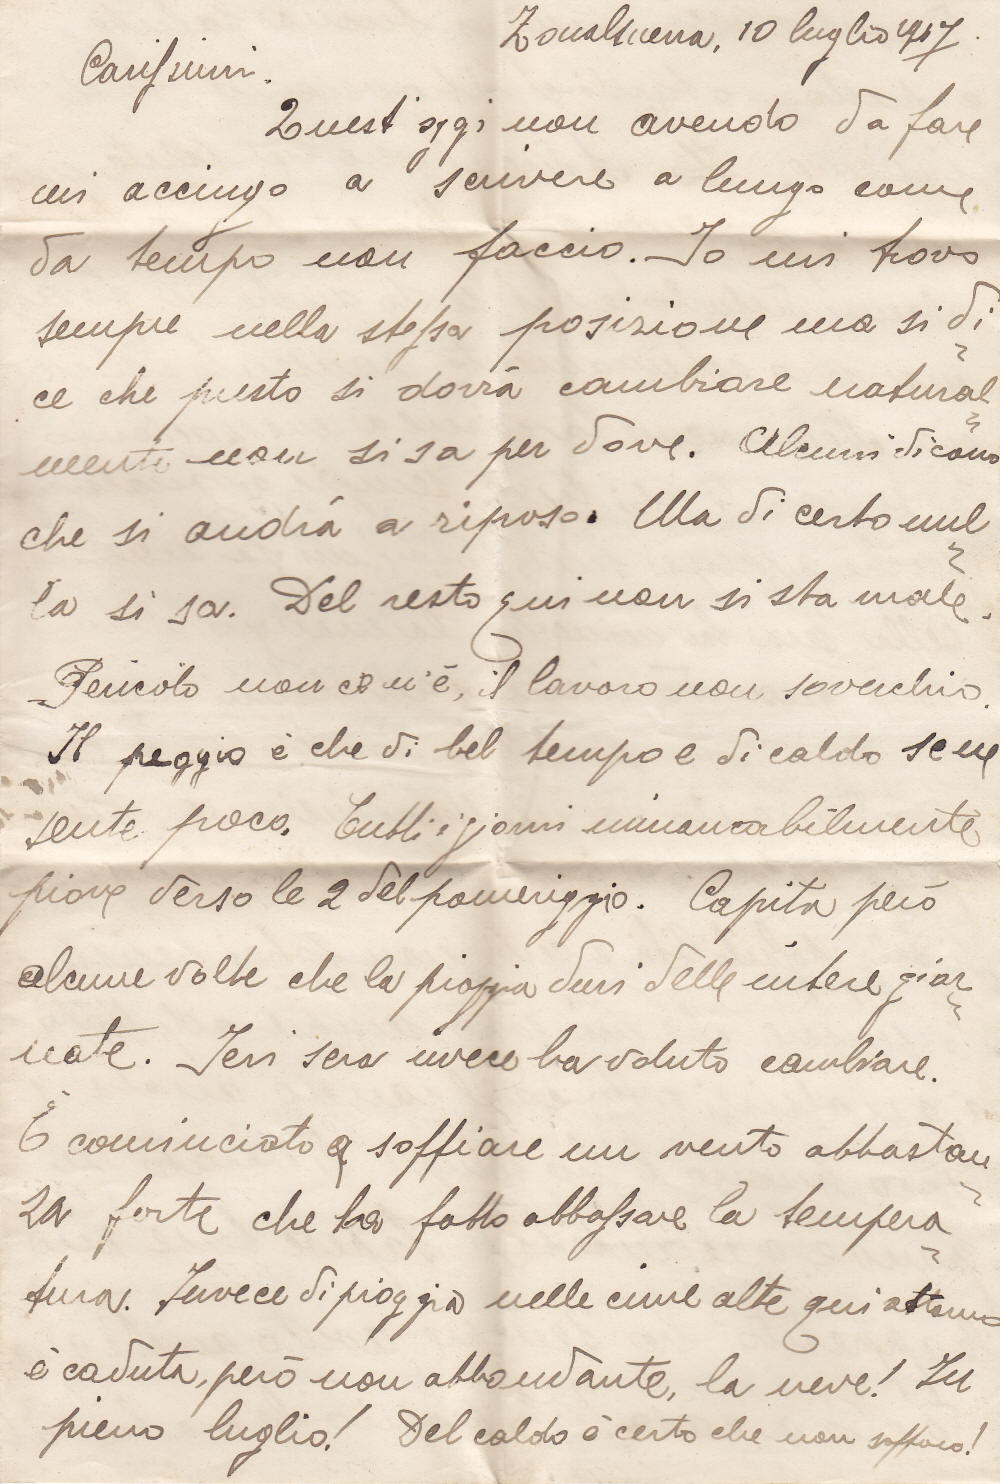 Zona Guerra, 10 luglio 1917.
Carissimi.
Quest'oggi non avendo da fare
mi accingo a scrivere a lungo come
da tempo non faccio. Io mi trovo
sempre nella stessa posizione ma si di
ce che presto si dovrà cambiare natural
mente non si sa per dove. Alcuni dicono
che si andrà a riposo. Ma di certo nul
la si sa. Del resto qui non si sta male.
Pericolo non ce n'è, il lavoro non soverchio.
Il peggio è che di bel tempo e di caldo se ne
sente poco. Tutti i giorni immancabilmente
piove verso le 2 del pomeriggio. Capita però
alcune volte che la pioggia duri delle intere gior
nate. Ieri sera invece ha voluto cambiare.
È cominciato a soffiare un vento abbastan
za forte che ha fatto abbassare la tempera
tura. Invece di pioggia nelle cime alte qui attorno
è caduta, però non abbondante, la neve! In
pieno luglio! Del caldo è certo che non soffro!